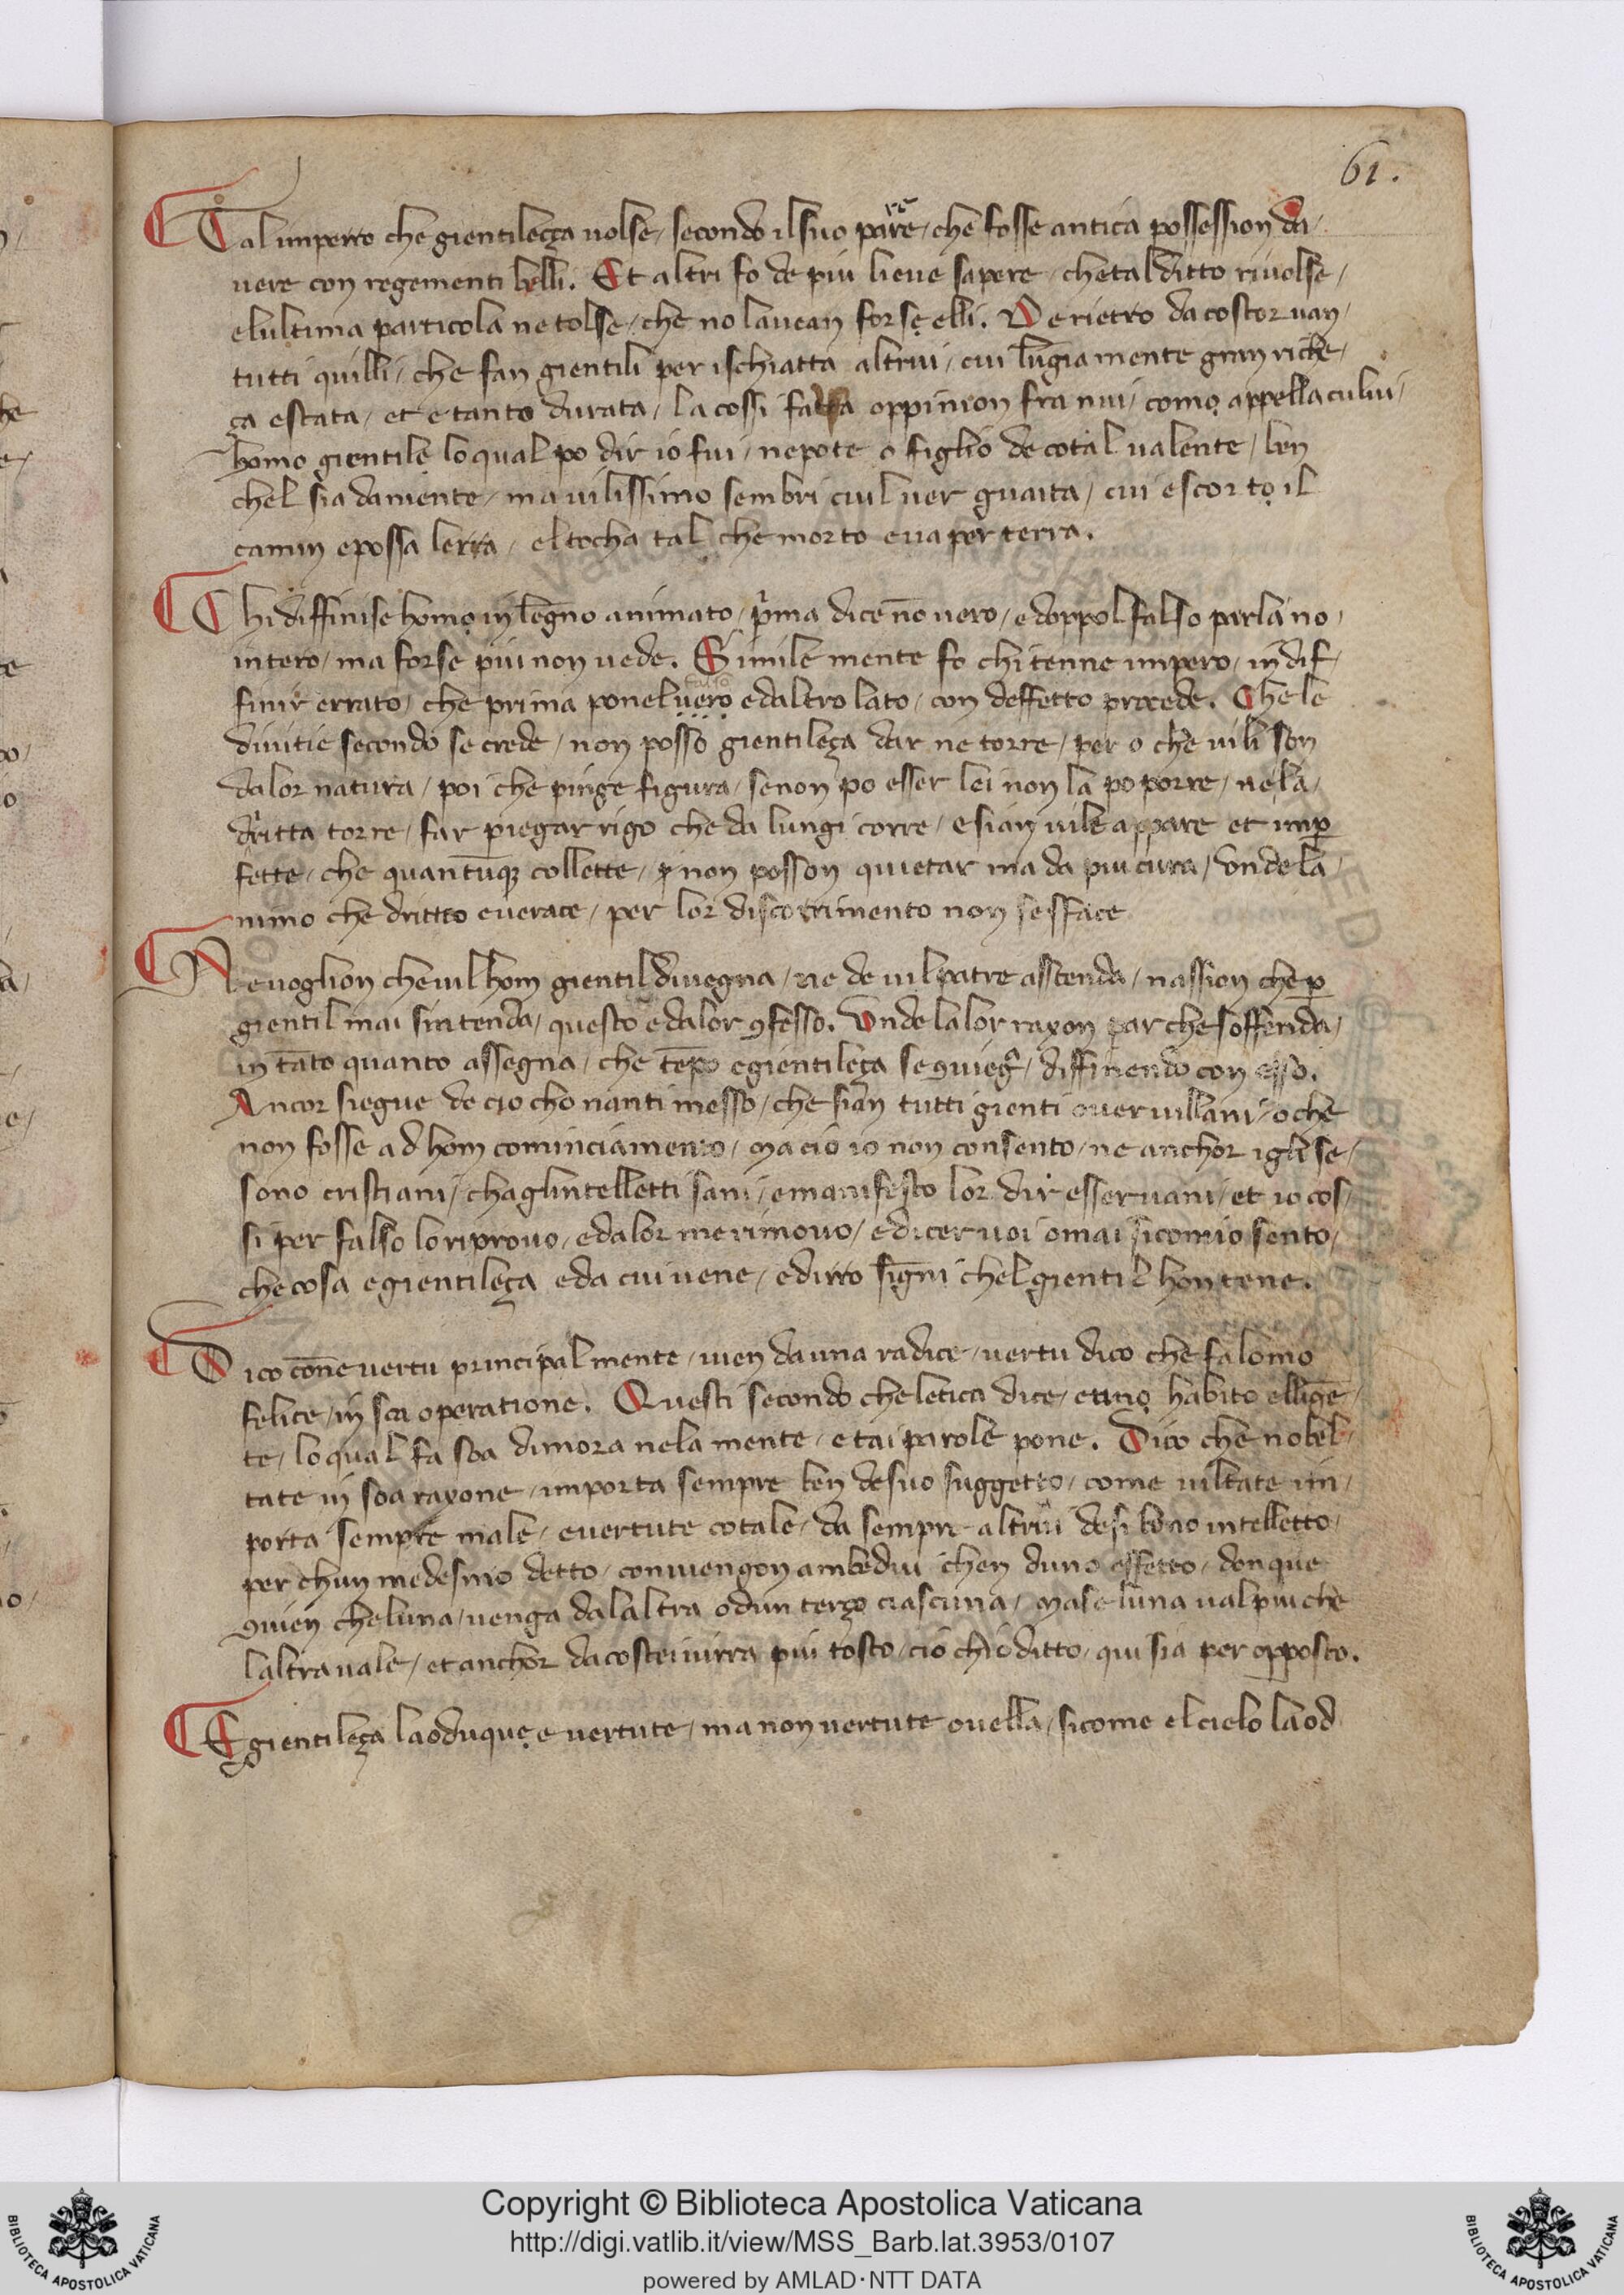 61.
Tal imperro che gientileçça uolse / secondo il suo parere / che fosse antica possession da /
uere con regementi belli. Et altri fo de piu lieue sapere / che tal ditto riuolse /
e lultima particola ne tolse / che no lauean forse elli. De rietro da costor uan /
tutti quilli / che fan gientili per ischiatta altrui / cui lungiamente gran riche /
ça e stata / et e tanto durata / la cossi falsa oppinion fra nui / como appella cului /
homo gientile lo qual po dir io fui / nepote o figlio de cotal ualente / ben
chel sia daniente / ma uilissimo sembri cuil uer guaita / cui e scorto il
camin e possa lerra / el tocha tal che morto e ua per terra.
Chi diffinise homo in legno animato / p̃ma dice nō uero / e doppol falso parla no /
intero / ma forse piu non uede. Simile mente fo chi tenne impero / in dif /
finir errato / che prima ponel uero e daltro lato / con deffetto procede. Che le
diuitie secondo se crede / non posso gientileça dar ne torre / per o che uili son
da lor natura / poi che pinge figura / se non po esser lei non la po porre / ne la /
dritta torre / far piegar rigo che da lungi corre / e sian uile appare et imꝑ
fette / che quantūqꝫ collette / non posson quietar ma da piu cura / Unde la /
nimo che dritto e uerace / per lor discorrimento non se sface
Ne uoglion che uil hom gientil diuegna / ne de uil patre asstenda / nassion che ꝑ
gientil mai sintenda / questo e da lor ꝯfesso. Unde la lor raxon par che soffenda /
in tāto quanto assegna / che tēpo e gientileça se ꝯuiegñ / diffinendo con esso.
Ancor siegue de cio cho nanti messo / che sian tutti gienti ouer uillani / o che
non fosse ad hom cominciamento / Ma cio io non consento / ne anchor igli se /
sono cristiani / chaglintelletti sani / e manifesto lor dir esser uani / et io cos /
si per falso lo riprouo / e da lor me rimouo / e dicer uoi omai si comio sento /
che cosa e gientileça e da cui uene / e dirro signi chel gientil hon tene.
Dico cōne uertu principal mente / uien da una radice / uertu dico che fa lomo
felice / in sca operatione. Questi secondo che letica dice / e habito elligē /
te / lo qual fa soa dimora ne la mente / e tai parole pone. Dico che nobel /
tate in soa raxone / importa sempre ben de suo suggetto / come uiltate im /
porta sempre male / e uertute cotale / da sempre altrui de si bono intelletto /
per chun medesmo detto / conuengon ambedui chen duno effetto / don que
ꝯuien che luna / uenga da laltra o dun terço ciascuna / Ma se luna ual piu che
laltra uale / et anchor da costei uirra piu tosto / cio chio ditto / qui sia per opposto.
E gientileça la oduque e uertute / ma non uertute ou ella / si come el cielo la od
Copyright © Biblioteca Apostolica Vaticana
http://digi.vatlib.it/view/MSS_Barb.lat.3953/0107
powered by AMLAD·NTT DATA
BIBLIOTECA APOSTOLICA VATICANA
BIBLIOTECA APOSTOLICA VATICANA